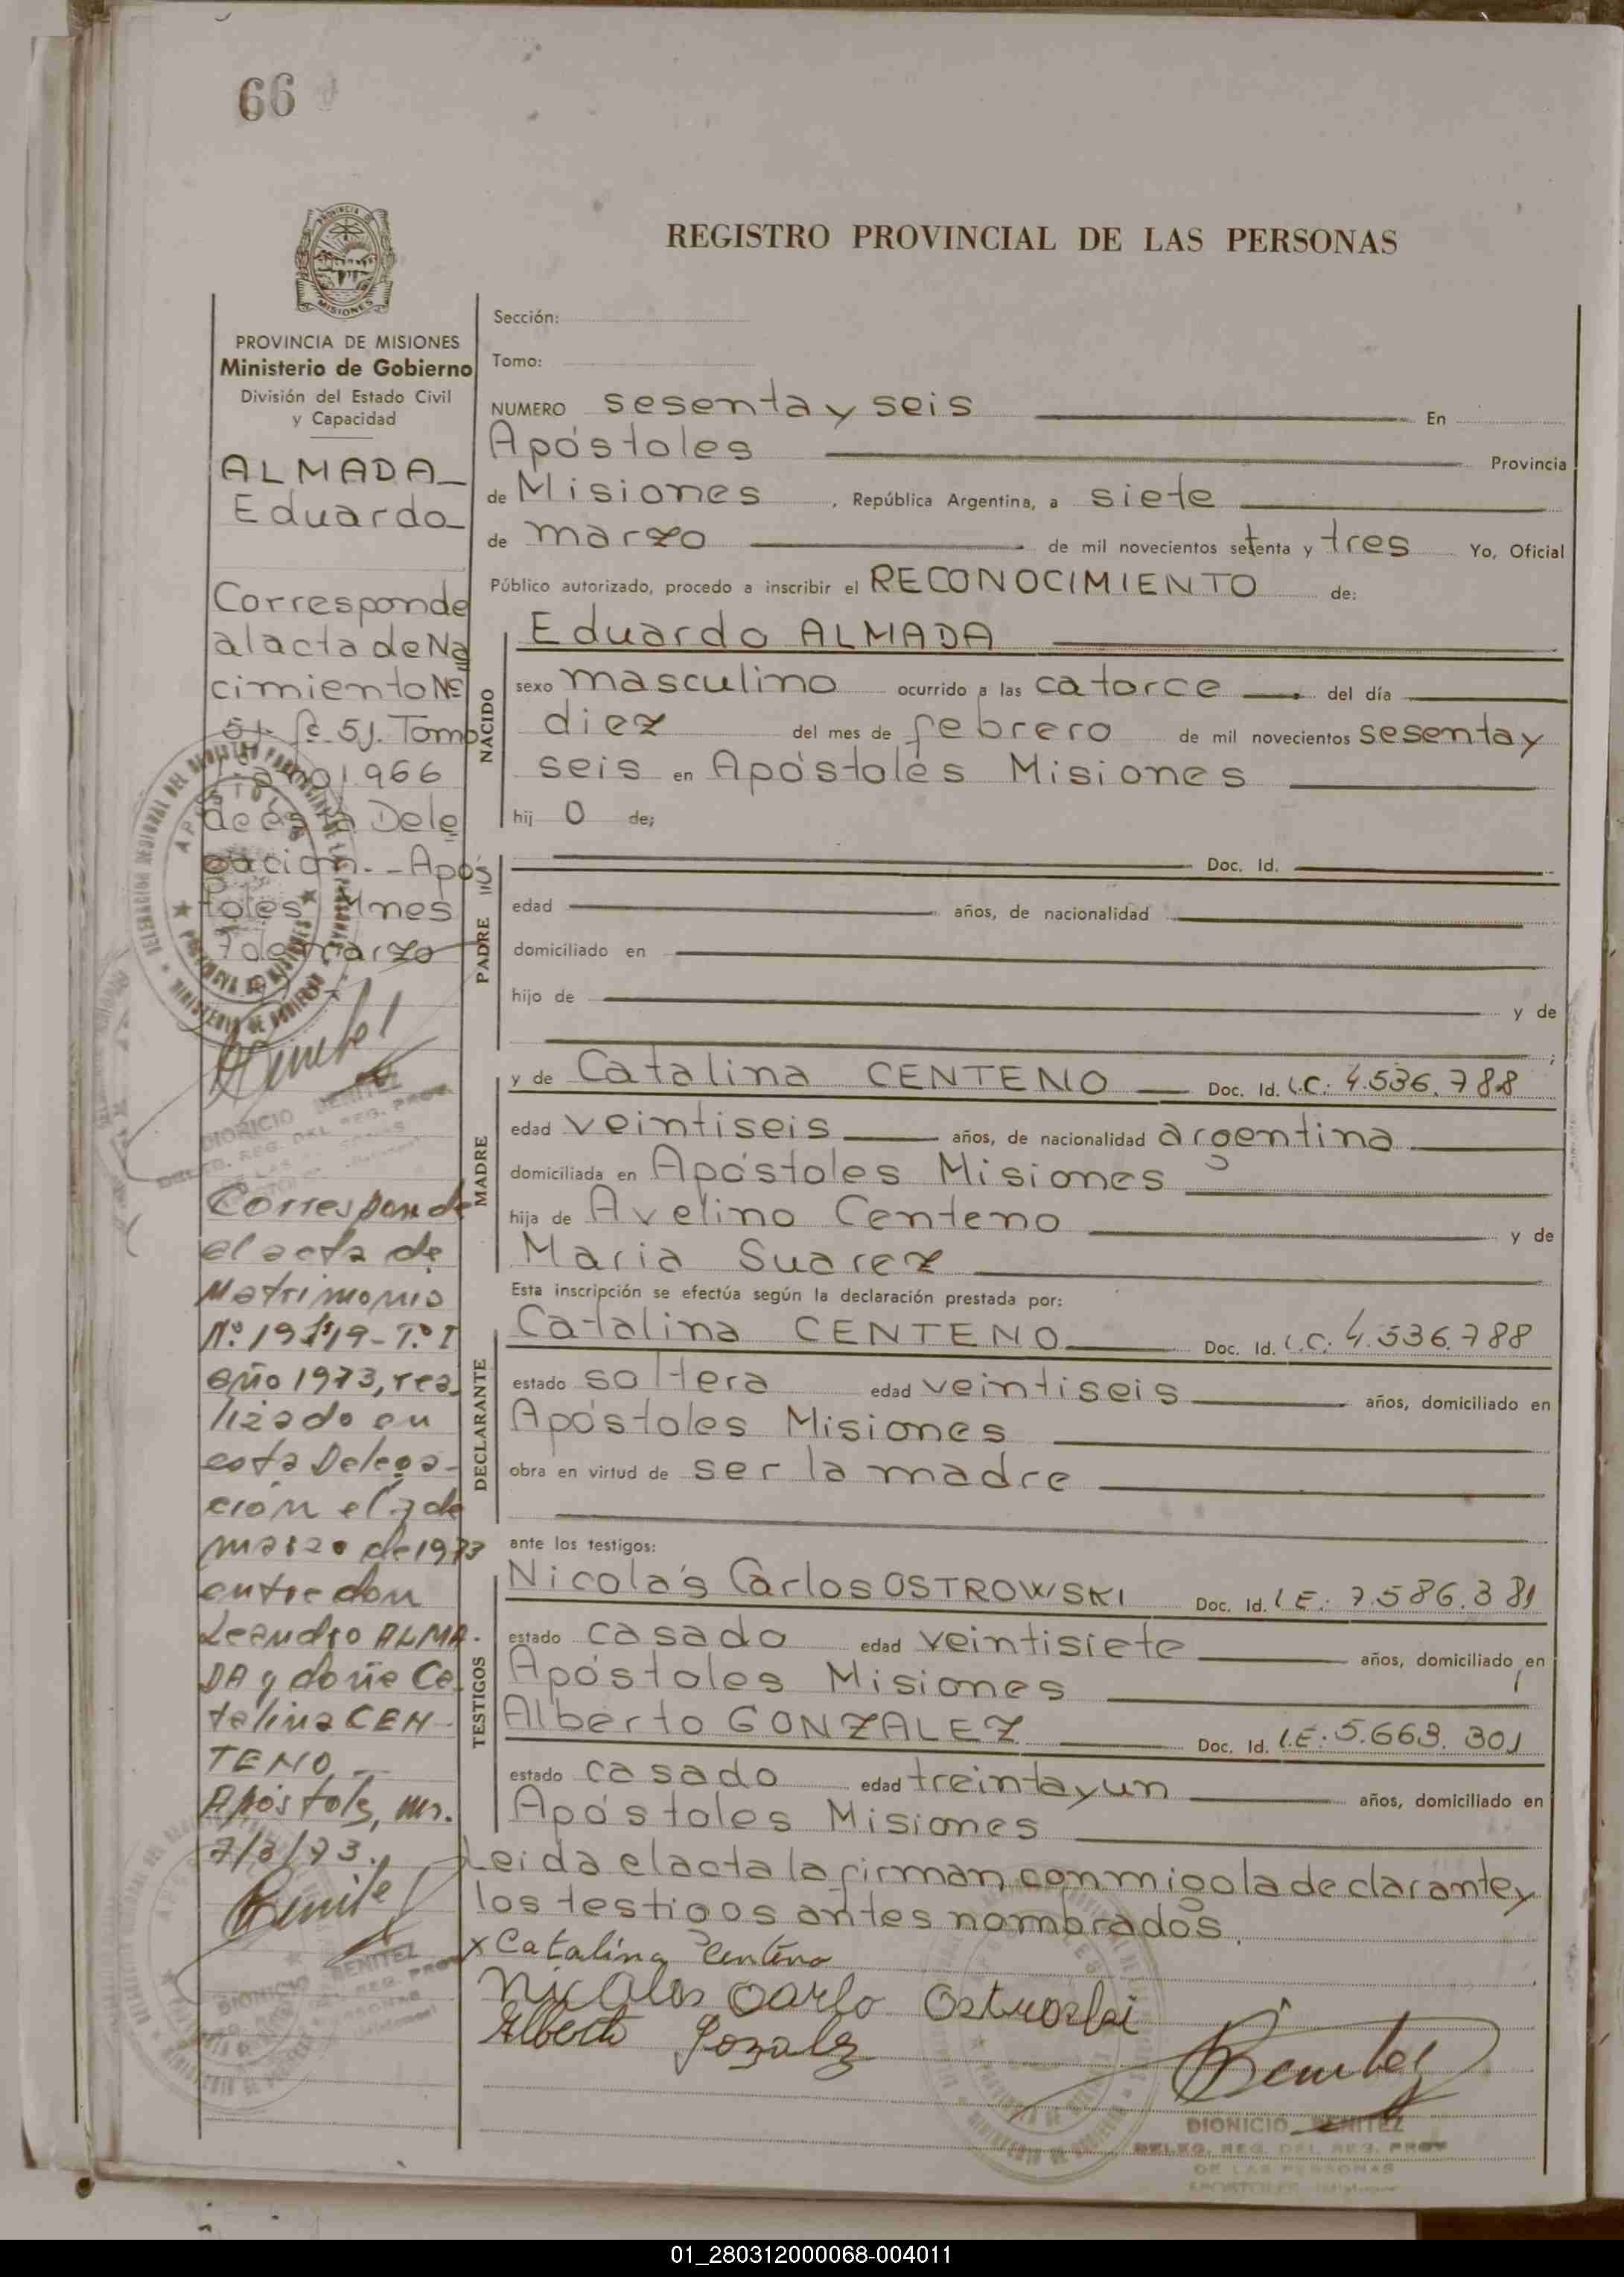 66
REGISTRO PROVINCIAL DE LAS PERSONAS
MISIONES
PROVINCIA DE MISIONES
Ministerio de Gobierno
División del Estado Civil
y Capacidad
ALMADA
Eduardo
Corresponde
al acta de Na
cimiento Nº
51 fº 51. Tomo
1966
de esta Dele
gacion. - Apos
toles Mnes
7 de marzo
DIONICIO BENITEZ
Corresponde
el acta de
Matrimonio
Nº 19 - Tº I
año 1973, rea
lizado en
esta Delega-
ción el 7 de
marzo de 1973
entre don
Leandro ALMA-
DA y doña Ca
talina CEN-
TENO
Apóstoles, Ms.
7/3/73.
DIONICIO BENITEZ
Sección:
Tomo:
NUMERO sesenta y seis En
Apóstoles Provincia
de Misiones, República Argentina, a siete
de marzo de mil novecientos setenta y tres Yo, Oficial
Público autorizado, procedo a inscribir el RECONOCIMIENTO de:
NACIDO
Eduardo ALMADA
sexo masculino ocurrido a las catorce del día
diez del mes de febrero de mil novecientos sesenta y
seis en Apóstoles Misiones
hij o de;
PADRE
Doc. Id.
edad años, de nacionalidad
domiciliado en
hijo de y de
;
MADRE
y de Catalina CENTENO Doc. Id. L.C: 4.536.788
edad veintiseis años, de nacionalidad argentina
domiciliada en Apóstoles Misiones
hija de Avelino Centeno y de
Maria Suarez
Esta inscripción se efectúa según la declaración prestada por:
DECLARANTE
Catalina CENTENO Doc. Id. L.C: 4.536.788
estado soltera edad veintiseis años, domiciliado en
Apóstoles Misiones
obra en virtud de ser la madre
ante los testigos:
TESTIGOS
Nicolás Carlos OSTROWSKI Doc. Id. L.E: 7.586.381
estado casado edad veintisiete años, domiciliado en
Apóstoles Misiones
Alberto GONZALEZ Doc. Id. L.E: 5.663.301
estado casado edad treinta y un años, domiciliado en
Apóstoles Misiones
Leida el acta la firman conmigo la declarante y
los testigos antes nombrados.
x Catalina Centeno
Nicolas Carlo Ostroski
Alberto Gozalez
Benitez
DIONICIO BENITEZ
DELEG. REG. DEL REG. PROV
DE LAS PERSONAS
01_280312000068-004011